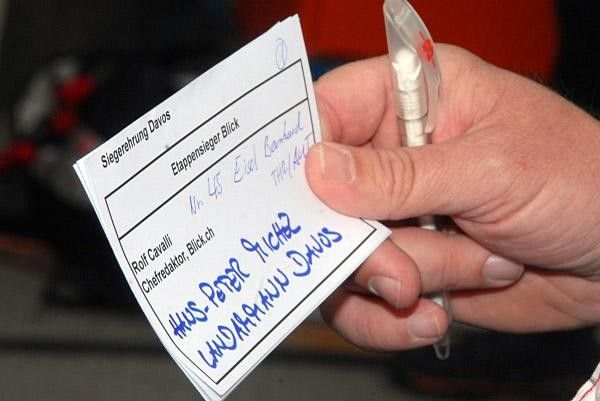 Siegerehrung Davos
Etappensieger Blick
Nr. 45 Eisel Bernhard
THR/AUT
Rolf Cavalli
Chefredaktor, Blick.ch
HANS-PETER MICHEL
LANDAMMANN DAVOS